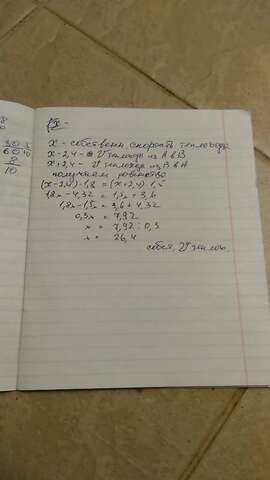 х - собственн скорость теплохода
х-2,4 - V теплохода из А в В
х+2,4 - V теплоход из В в А
получаем равенство
(х-2,4)·1,8 = (х+2,4)·1,5
1,8х - 4,32 = 1,5х + 3,6
1,8х - 1,5х = 3,6 + 4,32
0,3х = 7,92
х = 7,92 : 0,3
х = 26,4
собств, V теплох.
8
10